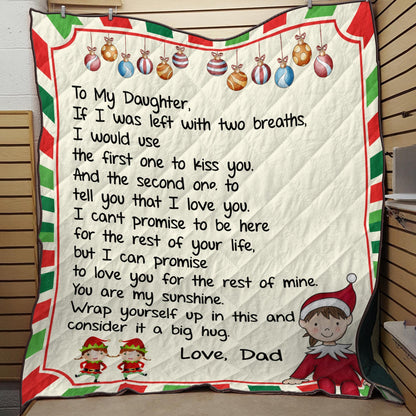 To My Daughter,
If I was left with two breaths,
I would use
the first one to kiss you,
And the second one to
tell you that I love you.
I can't promise to be here
for the rest of your life,
but I can promise
to love you for the rest of mine.
You are my sunshine.
Wrap yourself up in this and
consider it a big hug.
Love, Dad